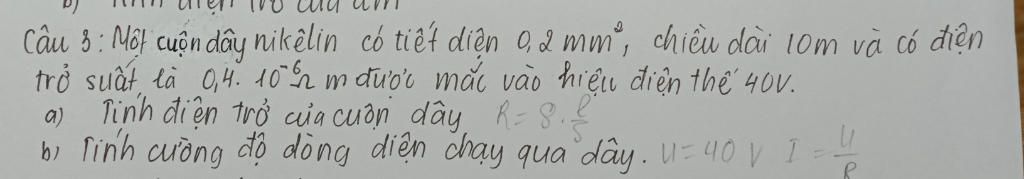 Câu 3: Một cuộn dây nikêlin có tiết diện 0,2 mm², chiều dài 10m và có điện
trở suất là 0,4. 10⁻⁶Ω m được mắc vào hiệu điện thế 40V.
a) Tính điện trở của cuộn dây R = 8 . l/S
b) Tính cường độ dòng điện chạy qua dây. U = 40 V I = U/R